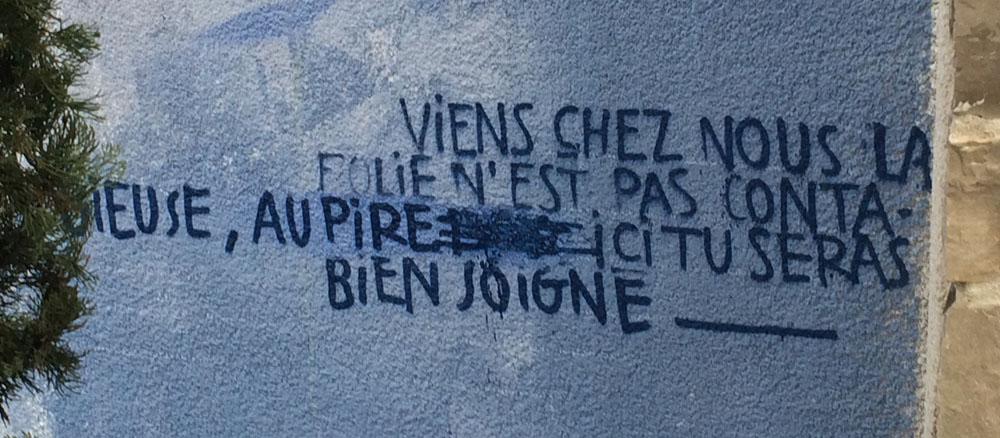 ViENS CHEZ NOUS LA
FOLiE N'EST PAS CONTA-
IEUSE, AU PiRE iCi TU SERAS
BiEN SOIGNE